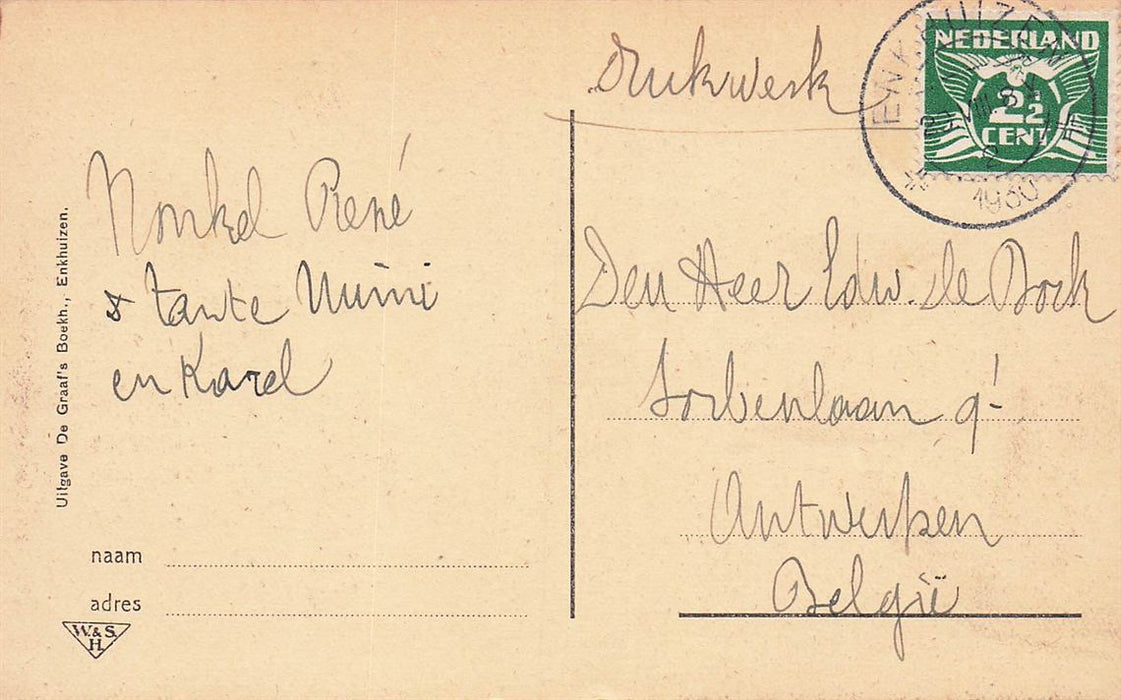 Uitgave De Graaf's Boekh., Enkhuizen.
Nonkel René
& tante Mimi
en Karel
naam
adres
W.&S.
H.
Drukwerk
ENKHUIZEN
1930
NEDERLAND
2½
CENT
Den Heer Edw. de Bock
Sorbenlaan 9
Antwerpen
België